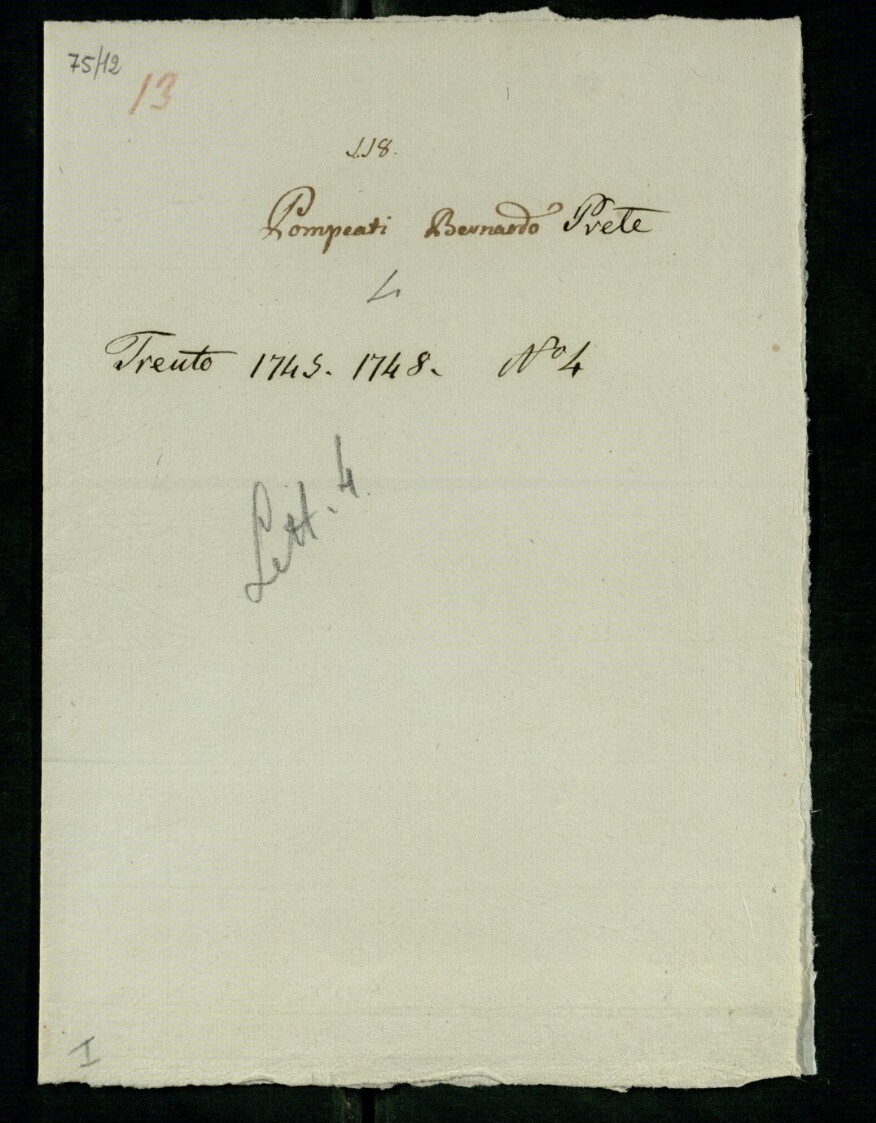 75/12
13
118.
Pompeati Bernardo Prete
4
Trento 1745. 1748. No 4
Lett. 4.
I